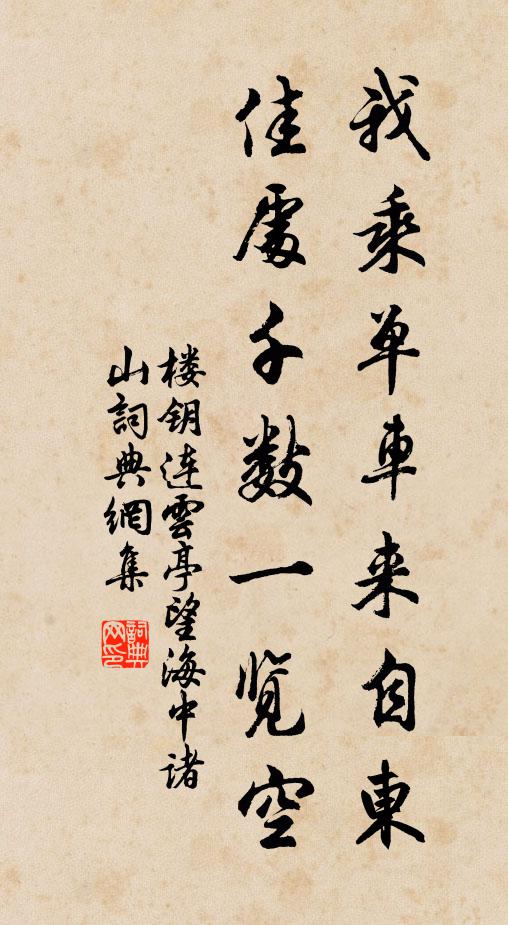 我乘单車来自東
佳處千數一览空
楼钥连雲亭望海中诸
山詞典網集
詞典
网印